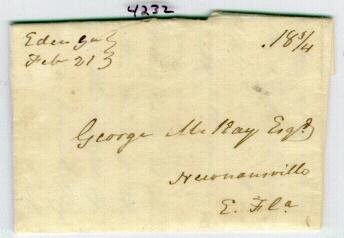 4232
Eden Ga
Feb 21
.18 3/4
George McKay Esqr
Newnansville
E. Fla